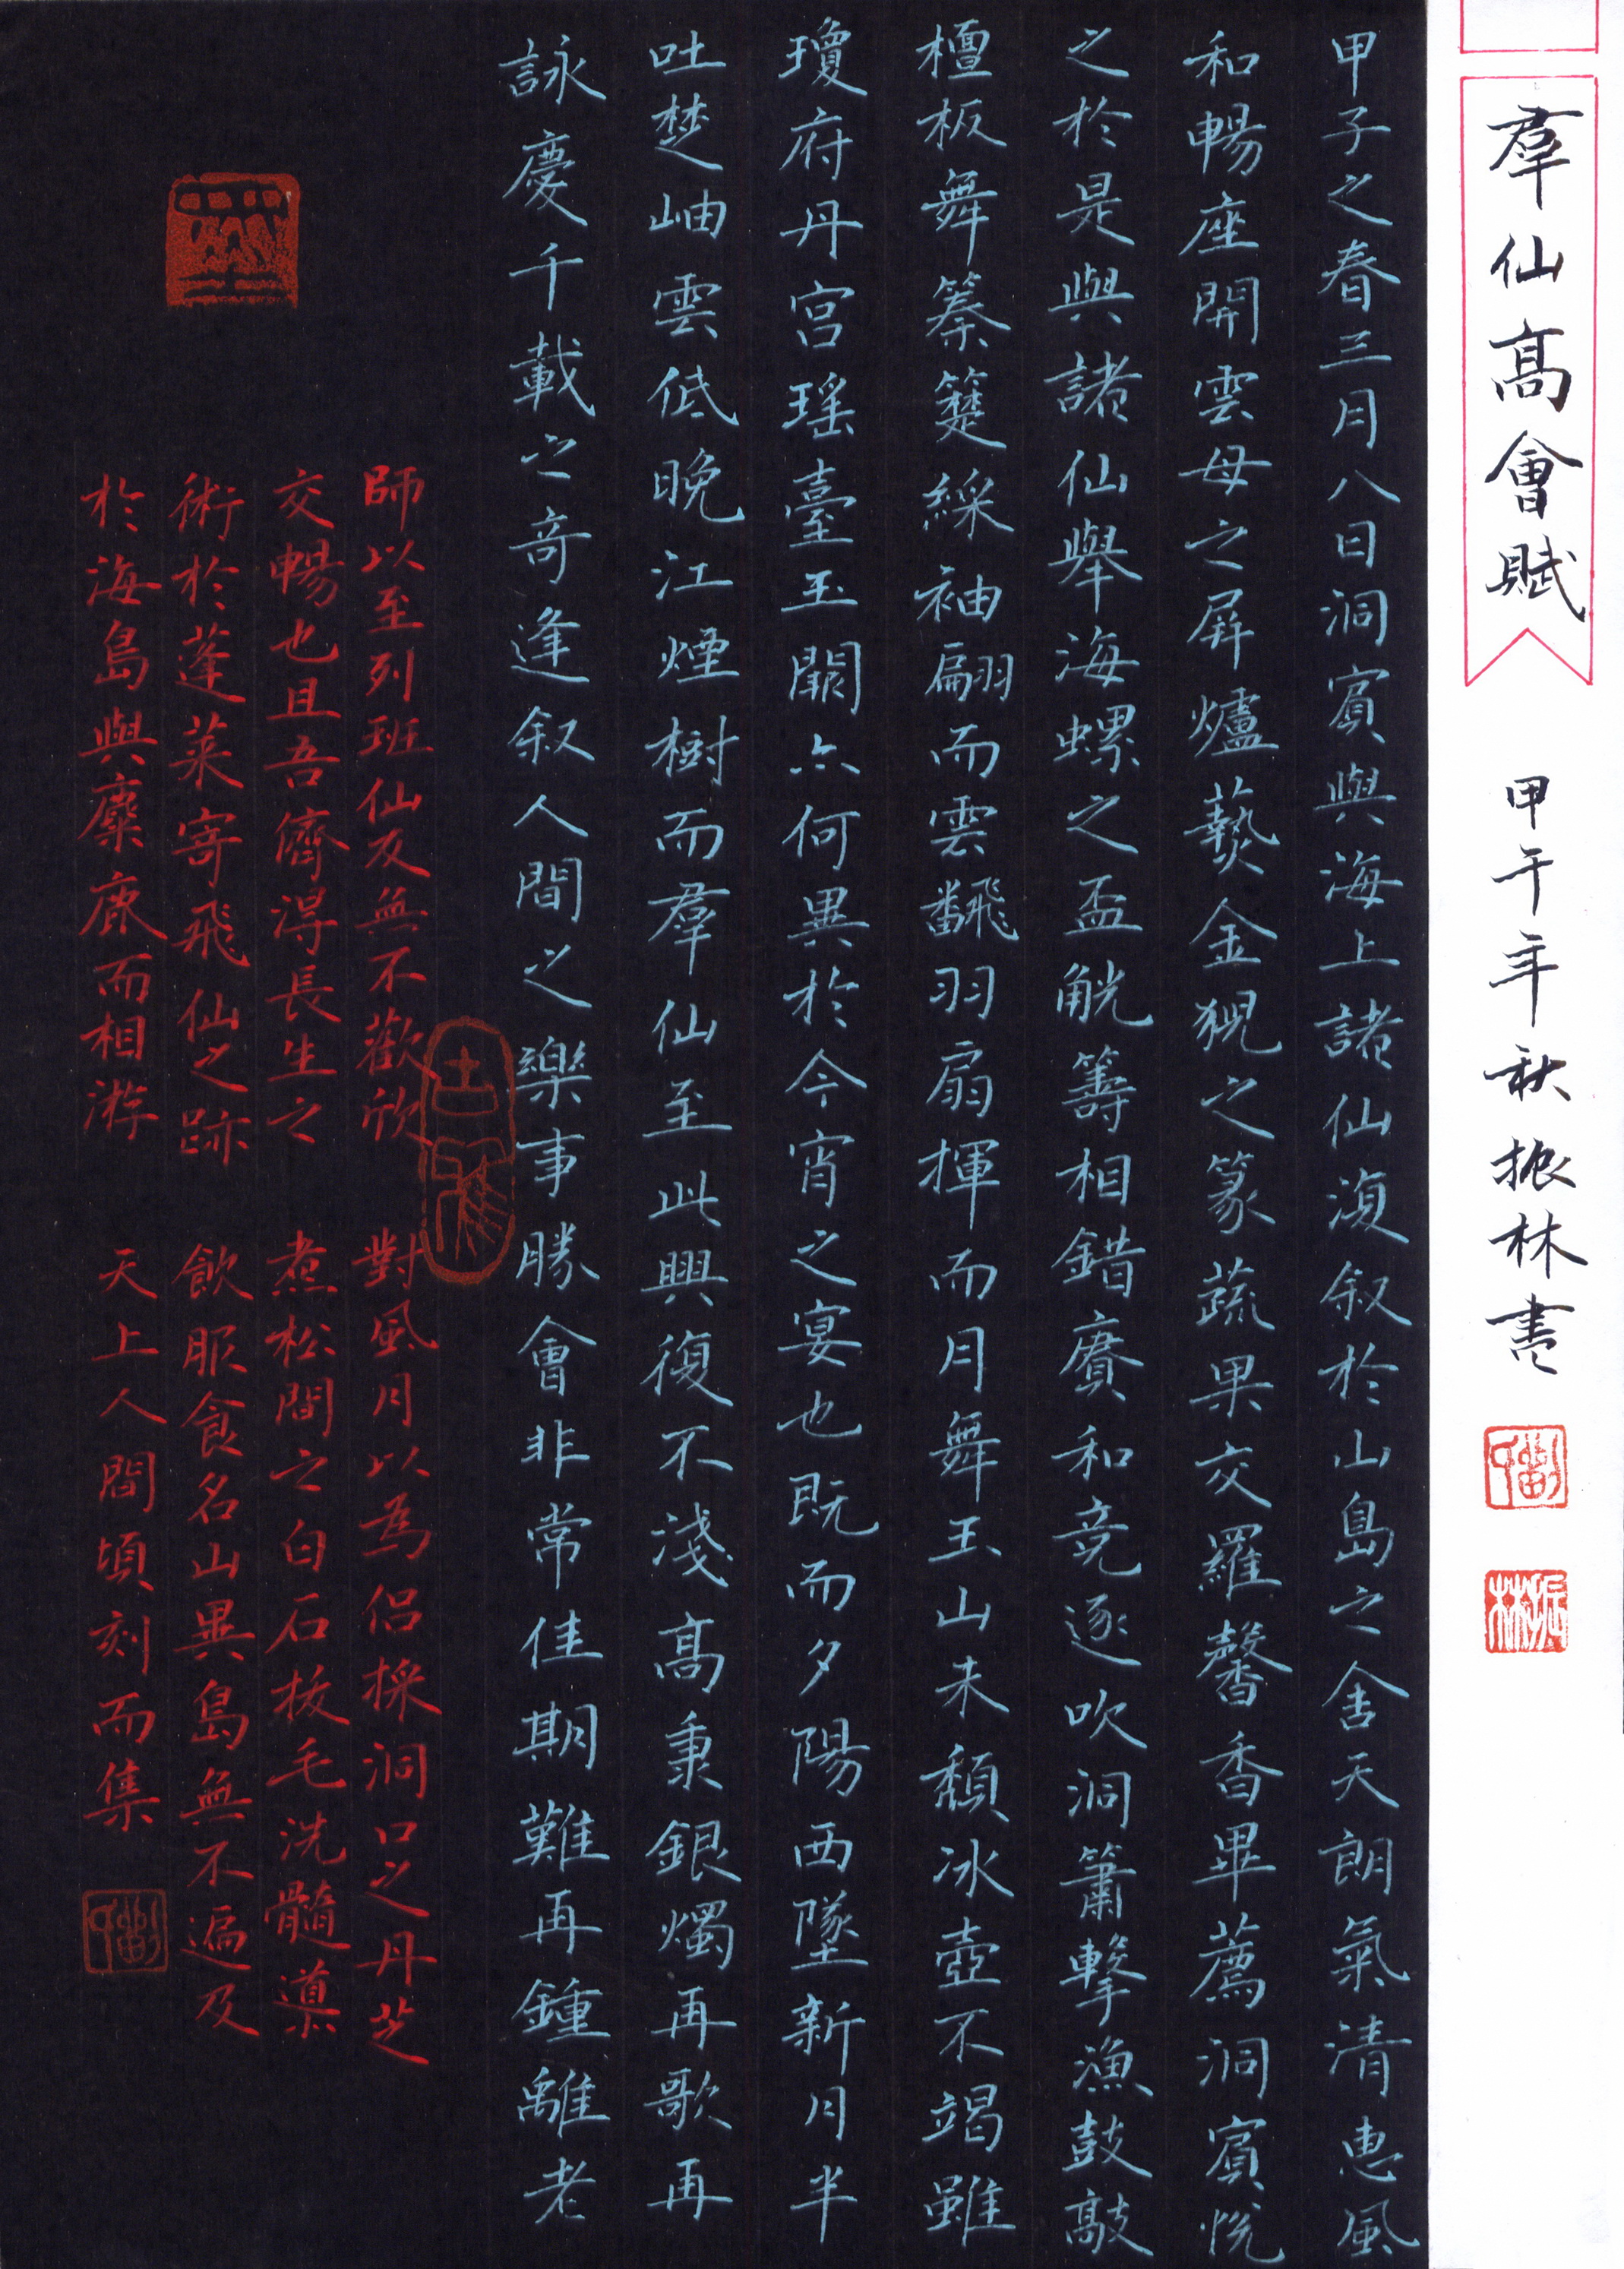 羣仙高會賦
甲午年秋 振林書
甲子之春三月八日洞賓與海上諸仙復叙於山島之舍天朗氣清惠風
和暢座開雲母之屏爐爇金猊之篆蔬果交羅馨香畢薦洞賓悅
之於是與諸仙舉海螺之盃觥籌相錯賡和竞逐吹洞簫擊漁鼓敲
檀板舞䉜䉜綵袖翩而雲飜羽扇揮而月舞玉山未頹冰壺不竭雖
瓊府丹宮瑶臺玉闕亦何異於今宵之宴也既而夕陽西墜新月半
吐楚岫雲低晚江煙樹而羣仙至此興復不淺高秉銀燭再歌再
詠慶千載之奇逢叙人間之樂事勝會非常佳期難再鍾離老
師以至列班仙友無不歡欣 對風月以為侣採洞口之丹芝
交暢也且吾儕得長生之 煮松間之白石拔毛洗髓導
術於蓬萊寄飛仙之跡 飲服食名山異島無不遍及
於海島與麋鹿而相游 天上人間頃刻而集